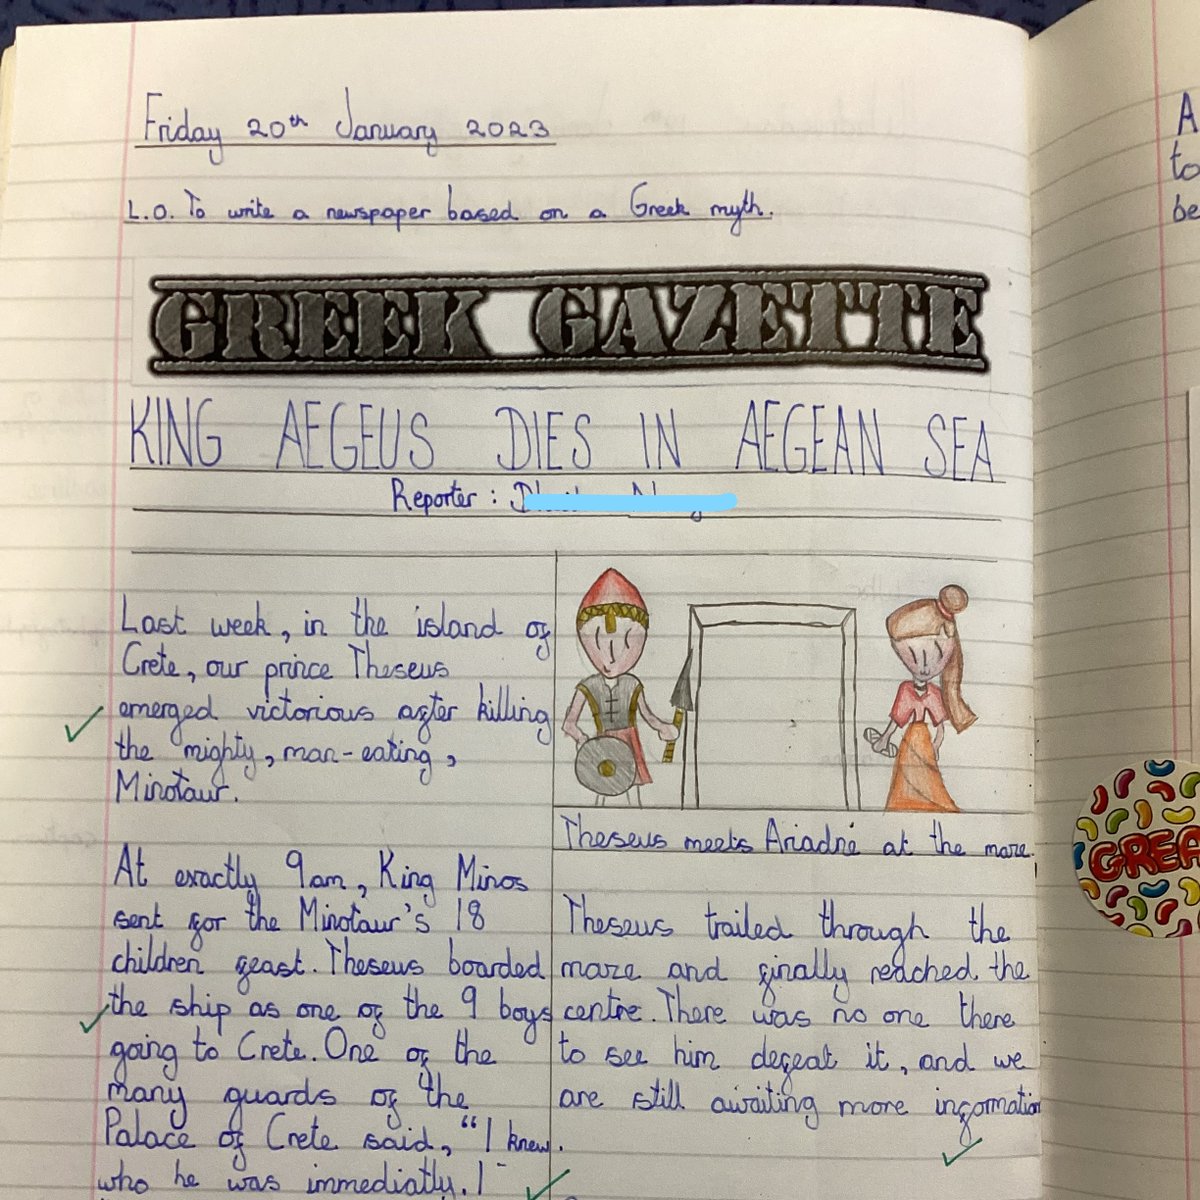 Friday 20th January 2023
L.O. To write a newspaper based on a Greek myth.
GREEK GAZETTE
KING AEGEUS DIES IN AEGEAN SEA
Reporter :
Last week, in the island of
Crete, our prince Theseus
emerged victorious after killing
the mighty, man-eating,
Minotaur.
At exactly 9am, King Minos
sent for the Minotaur's 18
children feast. Theseus boarded
the ship as one of the 9 boys
going to Crete. One of the
many guards of the
Palace of Crete said, "I knew
who he was immediatly. I
Theseus meets Ariadne at the maze.
Theseus trailed through the
maze and finally reached the
centre. There was no one there
to see him defeat it, and we
are still awaiting more information
A
to
be